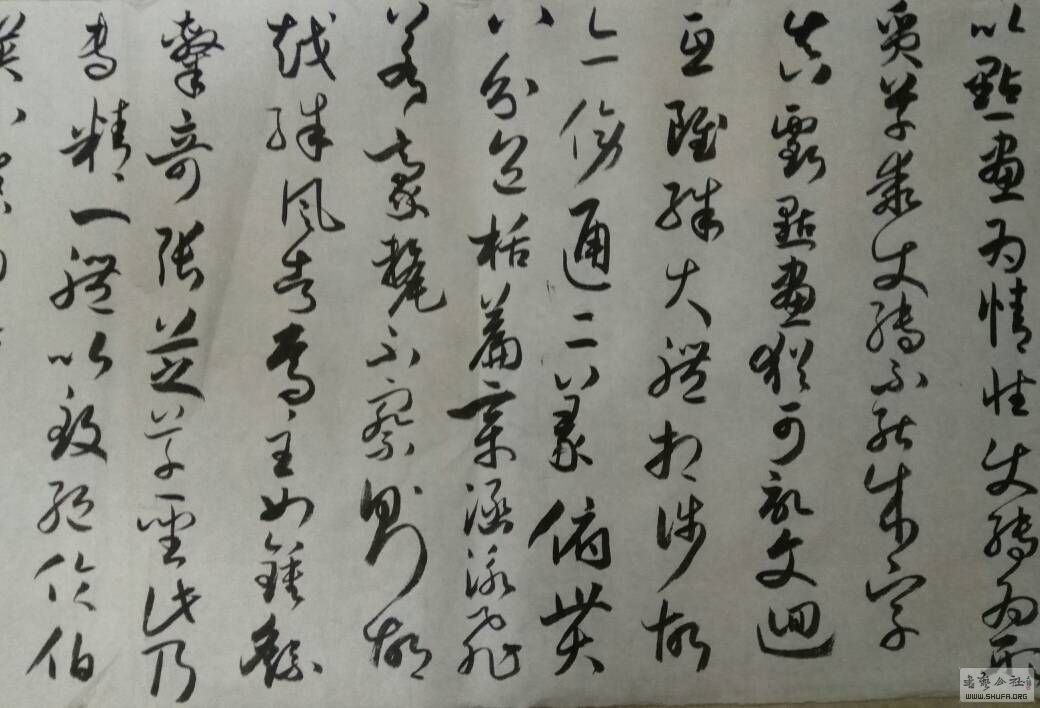 以點畫為情性使轉為形
質草乖使轉不能成字
真虧點畫猶可記文迴
互雖殊大體相涉故
亦傍通二篆俯貫
八分包括篇章涵泳飛
若豪氂不察則胡
越殊風者焉至如鍾繇
隸奇張芝草聖此乃
專精一體以致絕倫伯
英不
WWW.SHUFA.ORG